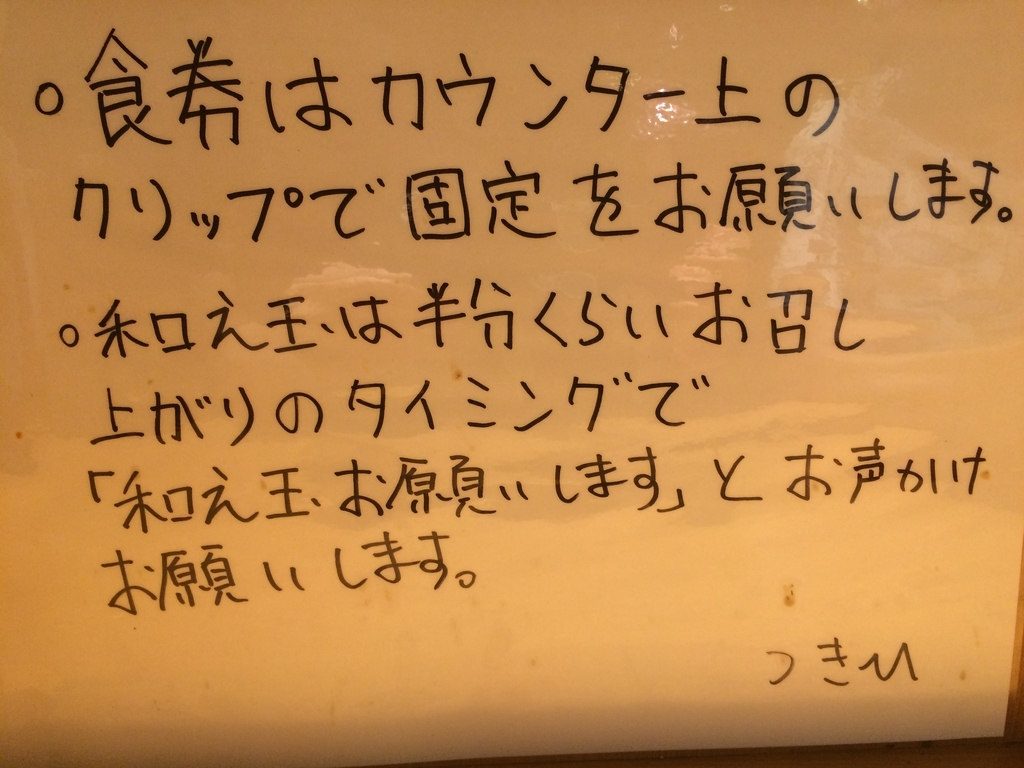 。食券はカウンター上の
クリップで固定をお願いします。
。和え玉は半分くらいお召し
上がりのタイミングで
「和え玉お願いします」とお声かけ
お願いします。
つきひ